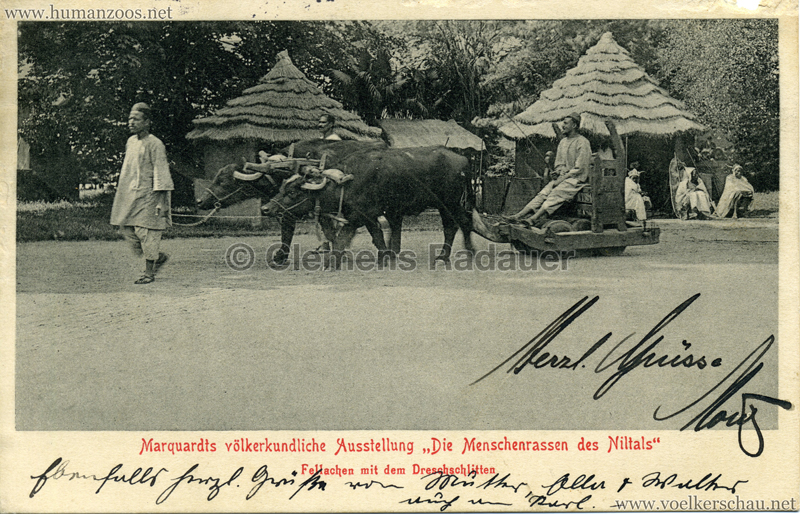 www.humanzoos.net
© Clemens Radauer
Herzl. Grüsse
Moritz
Marquardts völkerkundliche Ausstellung „Die Menschenrassen des Niltals“
Fellachen mit dem Dreschschlitten
Ebenfalls herzl. Grüße von Mutter, Olla & Walter
auch an Karl.
www.voelkerschau.net